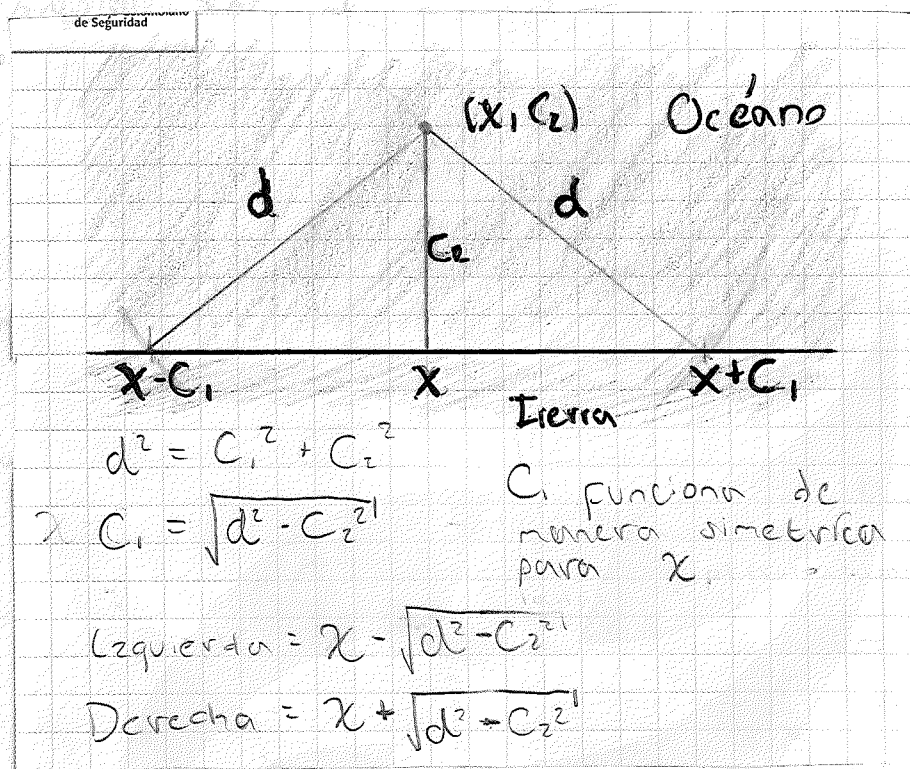 de Seguridad
(x, C₂) Océano
d d
C₂
x-C₁ x x+C₁
Tierra
d² = C₁² + C₂²
C₁ = √d² - C₂²
C₁ funciona de
manera simetrica
para x.
Izquierda = x - √d² - C₂²
Derecha = x + √d² - C₂²